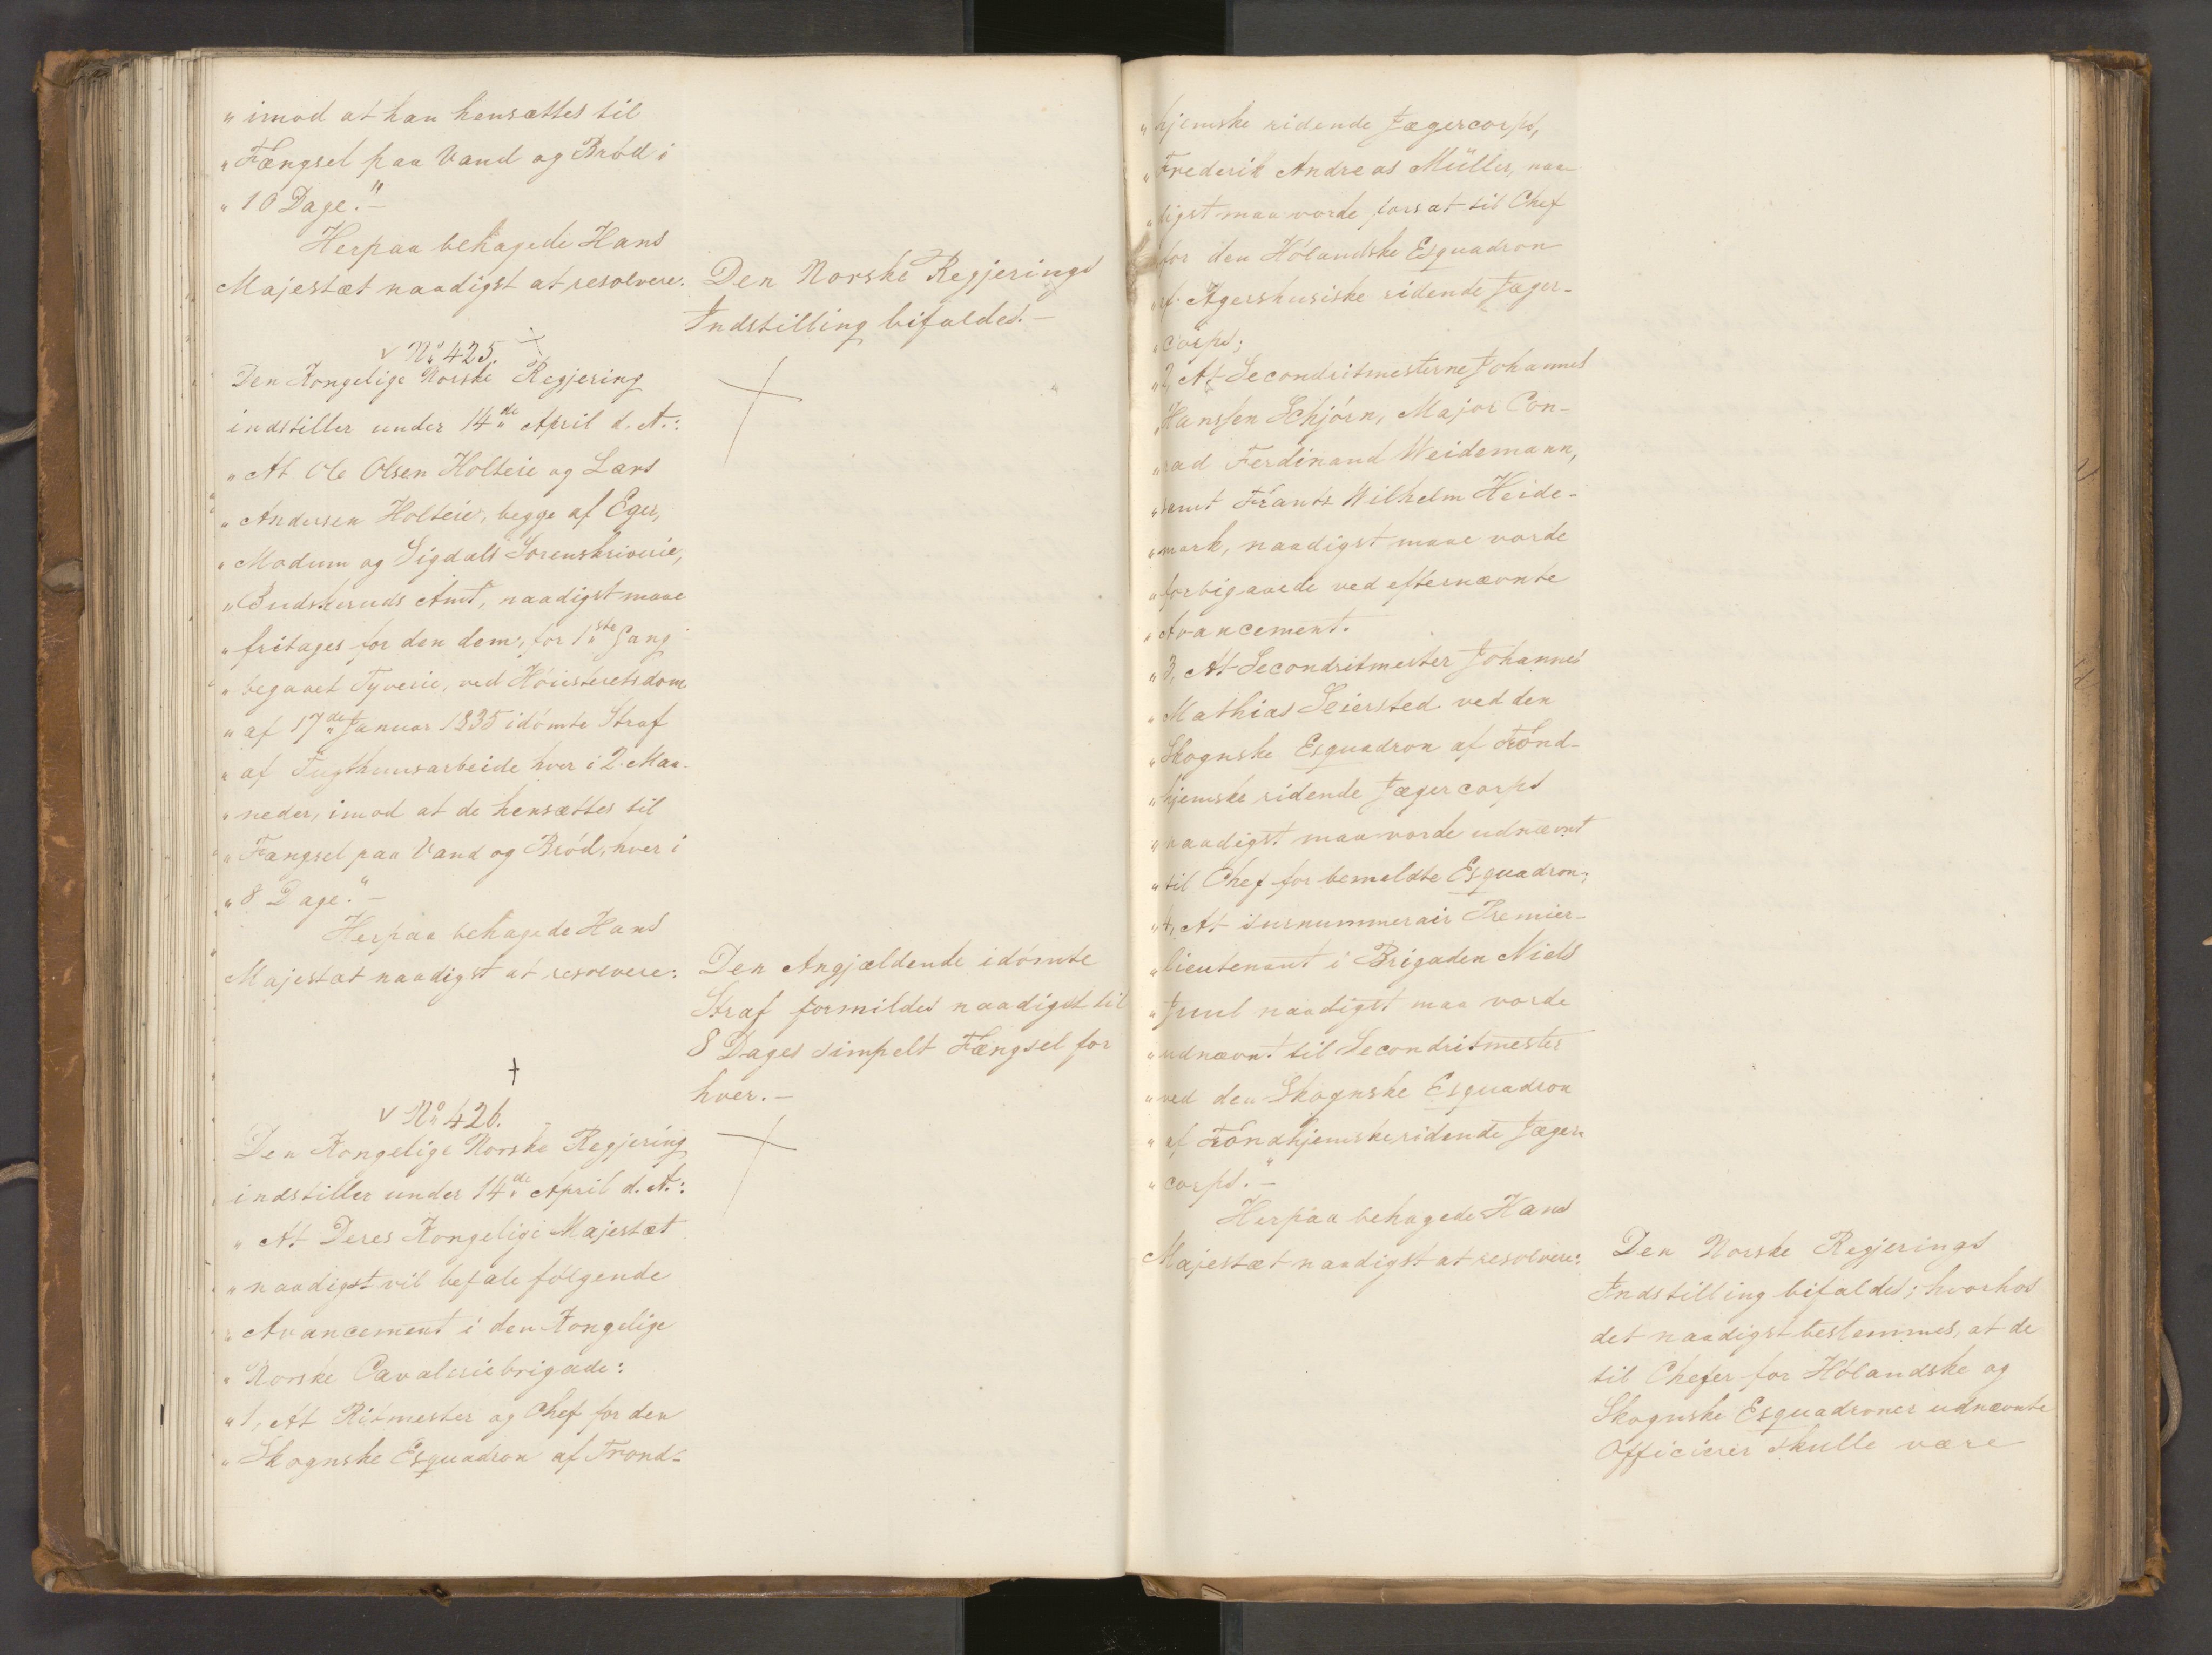 „imod at han hensættes til
„Fængsel paa Vand og Bród i
„10 Dage."-
Herpaa behagede Hans
Majestæt naadigst at resolvere:
Den Norske Regjerings
Indstilling bifaldes.-
No 425.
Den Kongelige Norske Regjering
indstiller under 14de April d. A.:
„At Ole Olsen Holteie og Lars
„Andersen Holteie, begge af Eger,
„Modum og Sigdals Sorenskriverie,
„Budskeruds Amt, naadigst maae
„fritages for den dem, for 1ste Gang
„begaaet Tyverie, ved Hóiesteretsdom
„af 17de Januar 1835 idómte Straf
„af Tugthuusarbeide hver i 2 Maa-
„neder, imod at de hensættes til
„Fængsel paa Vand og Bród, hver i
„8 Dage."-
Herpaa behagede Hans
Majestæt naadigst at resolvere:
Den Angjældende idómte
Straf formildes naadigst til
8 Dages simpelt Fængsel for
hver.-
No 426.
Den Kongelige Norske Regjering
indstiller under 14de April d. A.:
„At Deres Kongelige Majestæt
„naadigst vil befale fólgende
„Avancement i den Kongelige
„Norske Cavaleriebrigade:
„1, At Ritmester og Chef for den
„Skognske Esquadron af Trond-
„hjemske ridende Jægercorps,
„Frederik Andreas Müller, naa-
„digst maa vorde forsat til Chef
„for den Hólandske Esquadron
„af Agershusiske ridende Jæger-
„corps;
„2, At Secondritmesterne Johannes
„Hanssen Schjórn, Major Con-
„rad Ferdinand Weidemann,
„samt Frantz Wilhelm Heide-
„mark, naadigst maae vorde
„forbigaaede ved efternævnte
„Avancement.
„3, At Secondritmester Johannes
„Mathias Seiersted ved den
„Skognske Esquadron af Trónd-
„hjemske ridende Jægercorps
„naadigst maa vorde udnævnt
„til Chef for bemeldte Esquadron;
„4, At surnummerair Premier-
„lieutenant i Brigaden Niels
„Juul naadigst maa vorde
„udnævnt til Secondritmester
„ved den Skognske Esquadron
„af Tróndhjemske ridende Jæger-
„corps."-
Herpaa behagede Hans
Majestæt naadigst at resolvere:
Den Norske Regjerings
Indstilling bifaldes; hvorhos
det naadigst bestemmes, at de
til Chefer for Hólandske og
Skognske Esquadroner udnævnte
Officierer skulle være